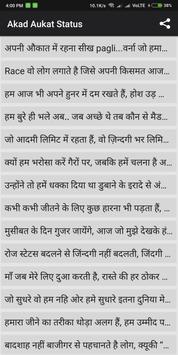 8:00 PM 10.1K/s VoLTE 38%
Akad Aukat Status
अपनी औकात में रहना सीख pagli...वर्ना जो हमा...
Race वो लोग लगाते है जिसे अपनी किसमत आज...
हम आज भी अपने हुनर में दम रखते हैं, होश उड़ ...
हम बुरे ही भले अब.. जब अच्छे थे तब कौन से मैड...
जो आदमी लिमिट में रहता हैं, वो ज़िन्दगी भर लि...
क्यों हम भरोसा करें गैरों पर, जबकि हमें चलना है अ...
उन्होंने तो हमें धक्का दिया था डुबाने के इरादे से अं...
कभी कभी जीतने के लिए कुछ हारना भी पड़ता हैं, ...
मुसीबत के दिन गुजर जायेंगे, आज जो मुझे देखके हं...
रोज स्टेटस बदलने से जिंदगी नहीं बदलती, जिंदगी ...
माँ जब मेरे लिए दुआ करती है, रास्ते की हर ठोकर ...
जो सुधरे वो हम नहि ओर हमे सुधारे इतना दुनिया मे...
हमारा जीने का तरीका थोड़ा अलग है, हम उम्मीद प...
बादशाह नहीं बाजीगर से पहचानते है लोग, क्यूकी “...